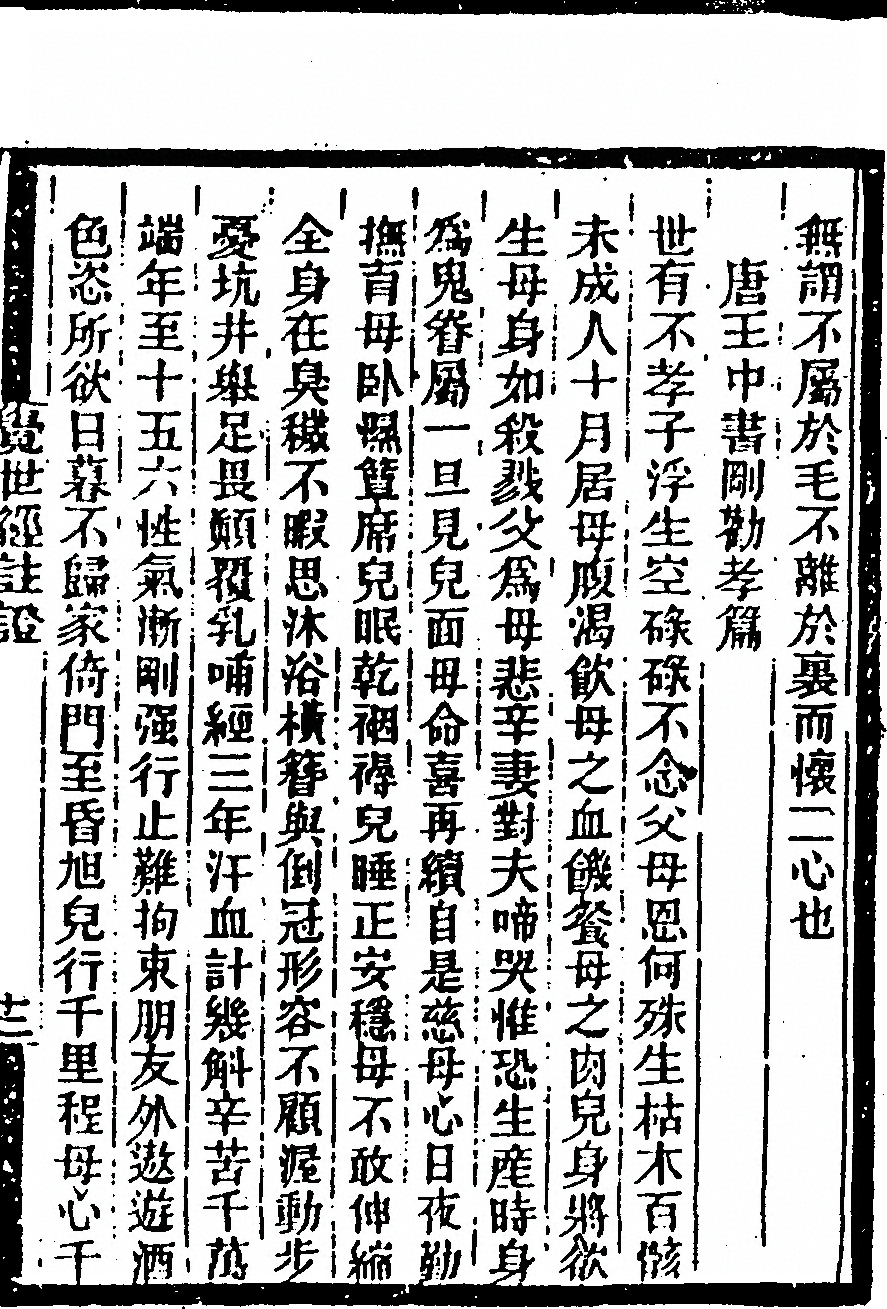 無謂不屬於毛不離於裏而懷二心也
唐王中書剛勸孝篇
世有不孝子浮生空碌碌不念父母恩何殊生枯木百骸
未成人十月居母腹渴飲母之血饑餐母之肉兒身將欲
生母身如殺戮父為母悲辛妻對夫啼哭惟恐生產時身
為鬼眷屬一旦見兒面母命喜再續自是慈母心日夜勤
撫育母卧濕簟席兒眠乾裀褥兒睡正安穩母不敢伸縮
全身在臭穢不暇思沐浴橫簪與倒冠形容不顧渥動步
憂坑井舉足畏顛覆乳哺經三年汗血計幾斛辛苦千萬
端年至十五六性氣漸剛强行止難拘束朋友外遨遊酒
色恣所欲日暮不歸家倚門至昏旭兒行千里程母心千
覺世經註證
十二